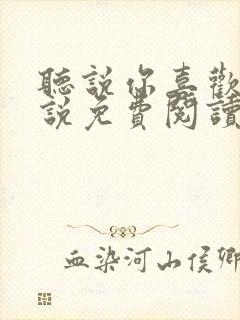 聽説你喜歡
説免費閱讀
血染河山侯卿